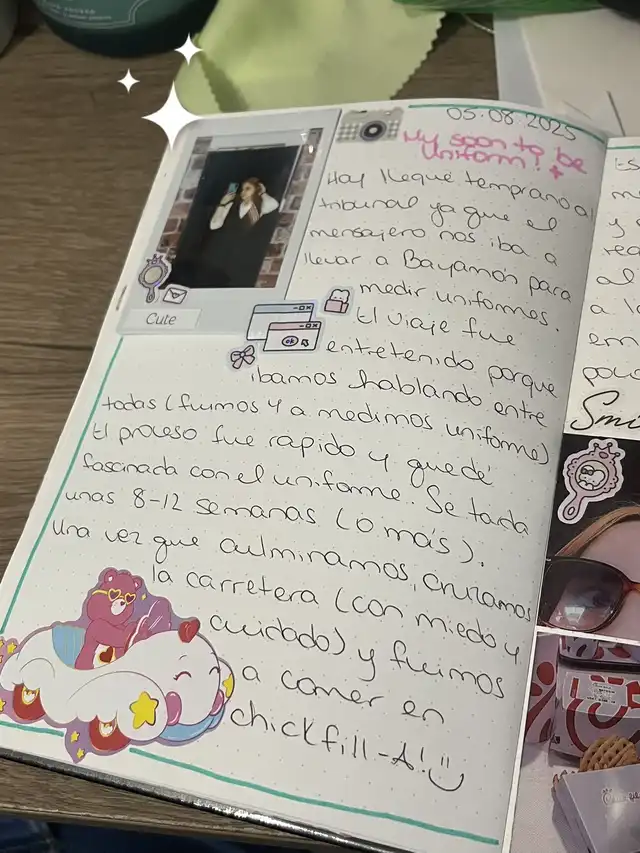 05.08.2025
My soon to be
Uniform!
Hoy llegué temprano al
tribunal ya que el
mensajero nos iba a
llevar a Bayamón para
medir uniformes.
El viaje fue
entretenido porque
ibamos hablando entre
todas (fuimos 4 a medirnos uniforme)
El proceso fue rapido y quedé
fascinada con el uniforme. Se tarda
unas 8-12 semanas (o más).
Una vez que culminamos, cruzamos
la carretera (con miedo y
cuidado) y fuimos
a comer en
chickfill-A!
Cute
ok